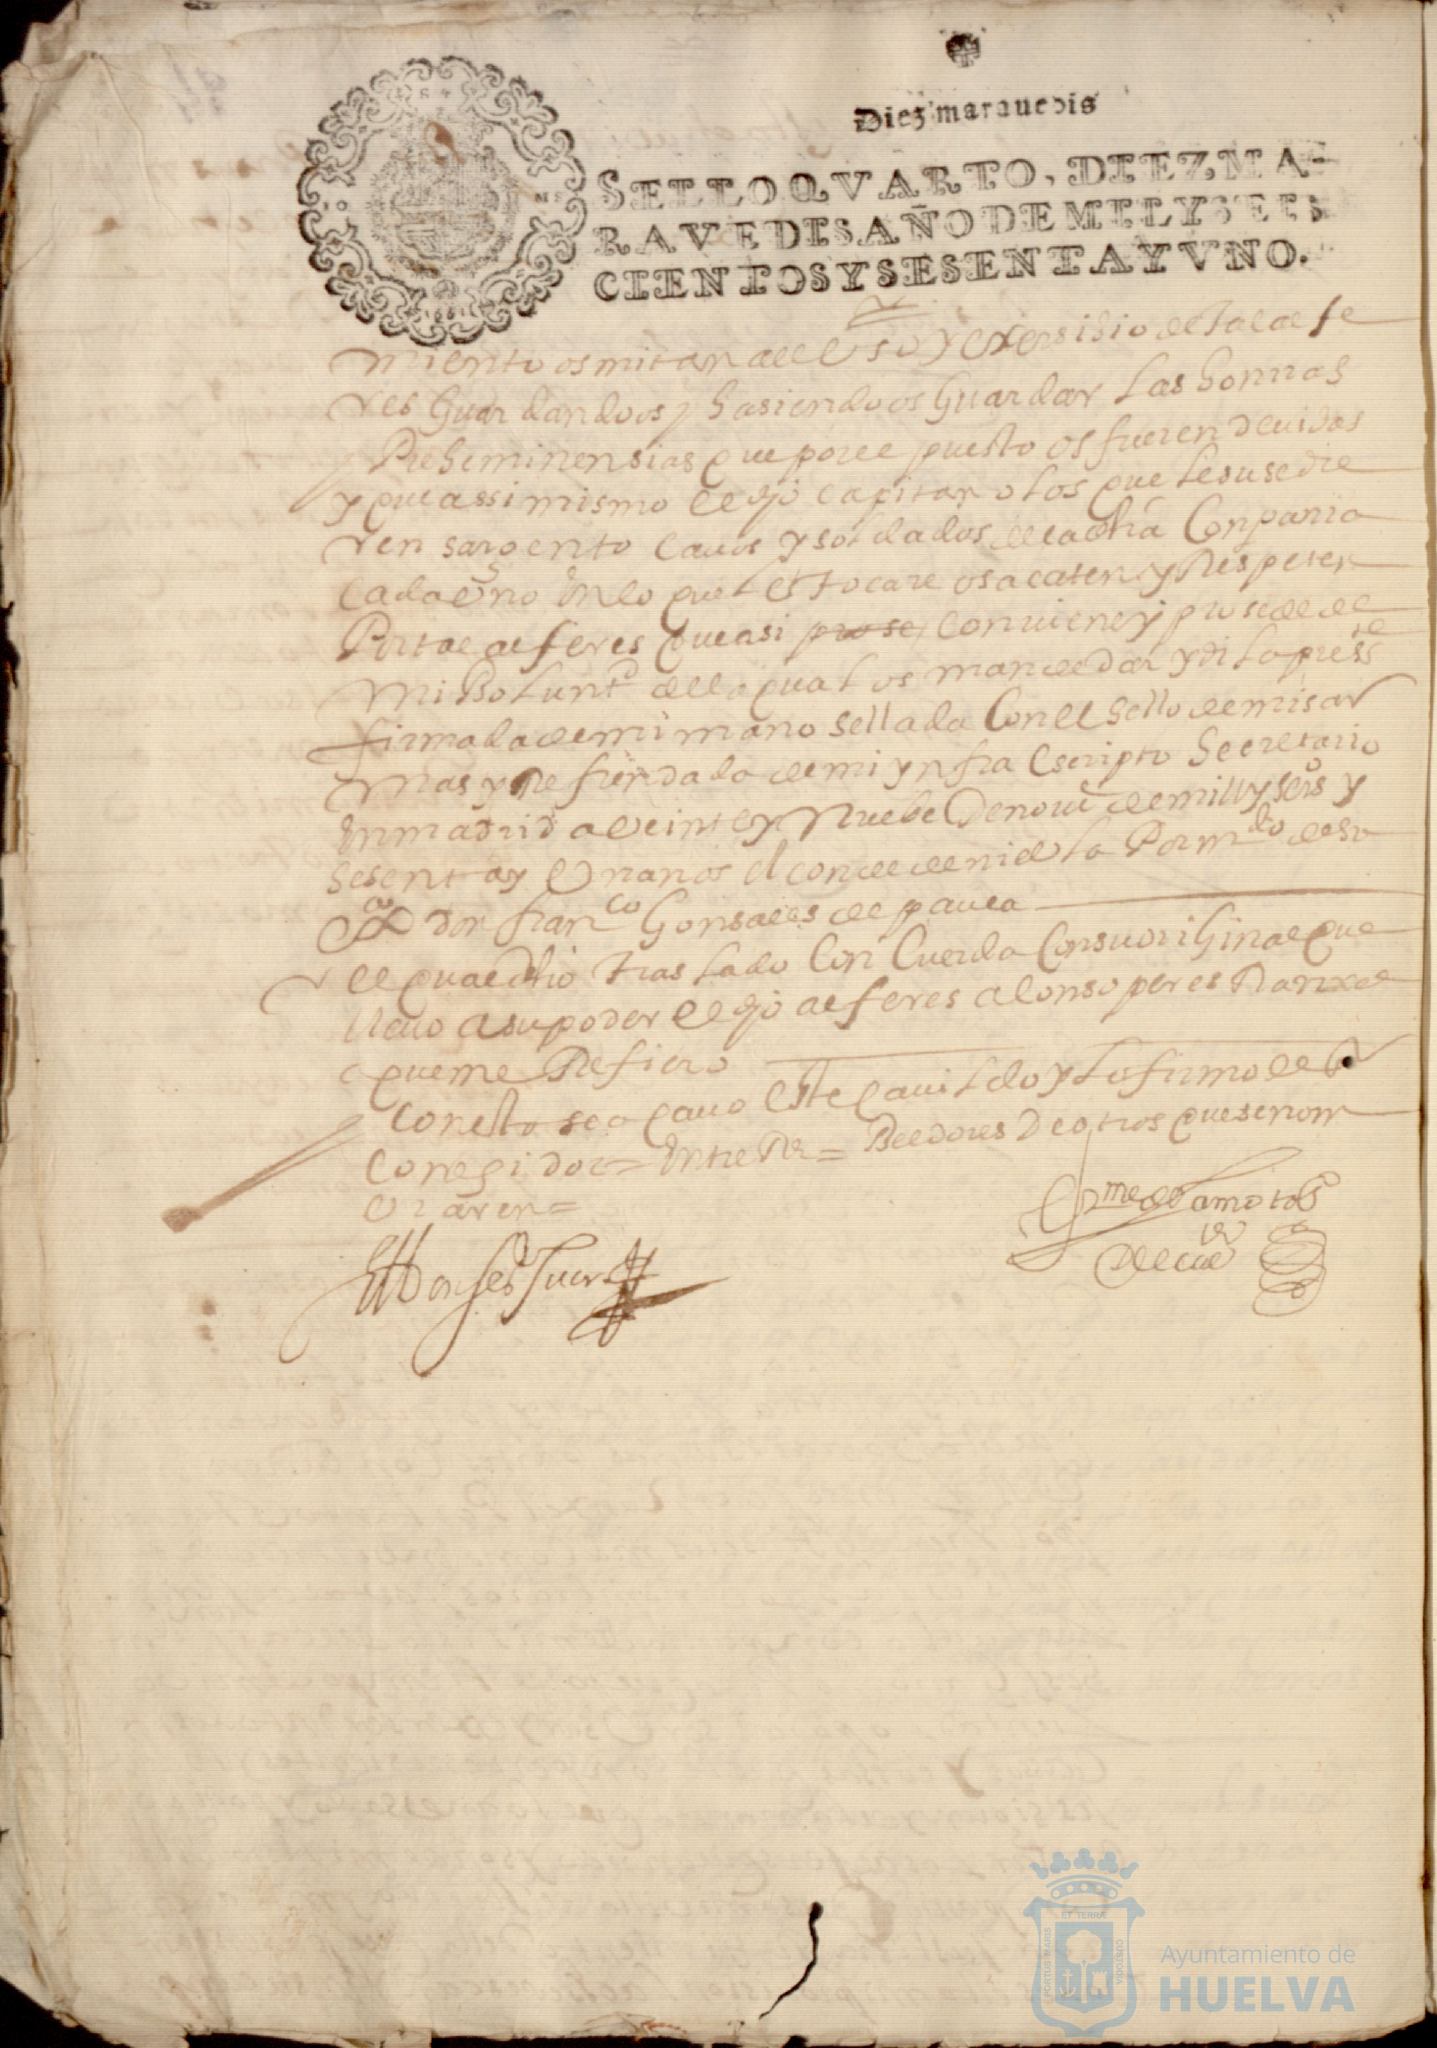 Diez marauedis
SELLO QVARTO, DIEZ MA-
RAVEDIS AÑO DE MIL Y SEIS
CIENTOS Y SESENTA Y VNO.
miento os mitan del Uso y exersisio de tal alfe
res Guardandoos y hasiendoos Guardar las honrras
y Preheminensias que por el puesto os fueren deuidas
y que assi mismo el dho capitan o los que le susedie
ren sargento cauos y soldados de la dha Conpania
Cada Uno En lo que les tocare os acaten y Respeten
Por tal alferes que asi prose conuiene y prosede de
mi Bolunt^d de lo qual os mande dar y di la press^te
firmada de mi mano sellada Con el sello de mis ar
mas y Refrendada de mi ynfra escripto Secretario
En madrid a Veinte y Nuebe De nou^e de mill y seis^os y
sesenta y Un anos el conde de niebla Por m^do de su
Ex^a don fran^co Gonsales de paula
el qual dho traslado Con Cuerda Con su original que
lleuo a su poder el dho alferes alonso peres Ranxel
a que me Refiero
Con esto se acauo este cauildo y lo firmo el
Coregidor = Entre R^s = Beedores De otros que se nom
braren =
Alonso